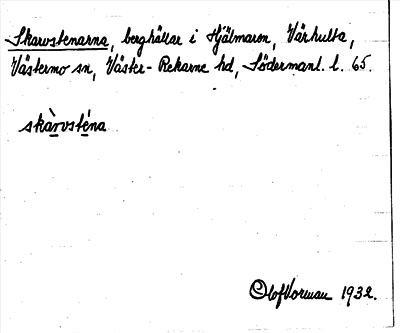 Skarvstenarna, berghällar i Hjälmaren, Värhulta,
Västermo sn, Väster-Rekarne hd, Södermanl. l. 65.
skàrvsténa
Olof Vorman 1932.